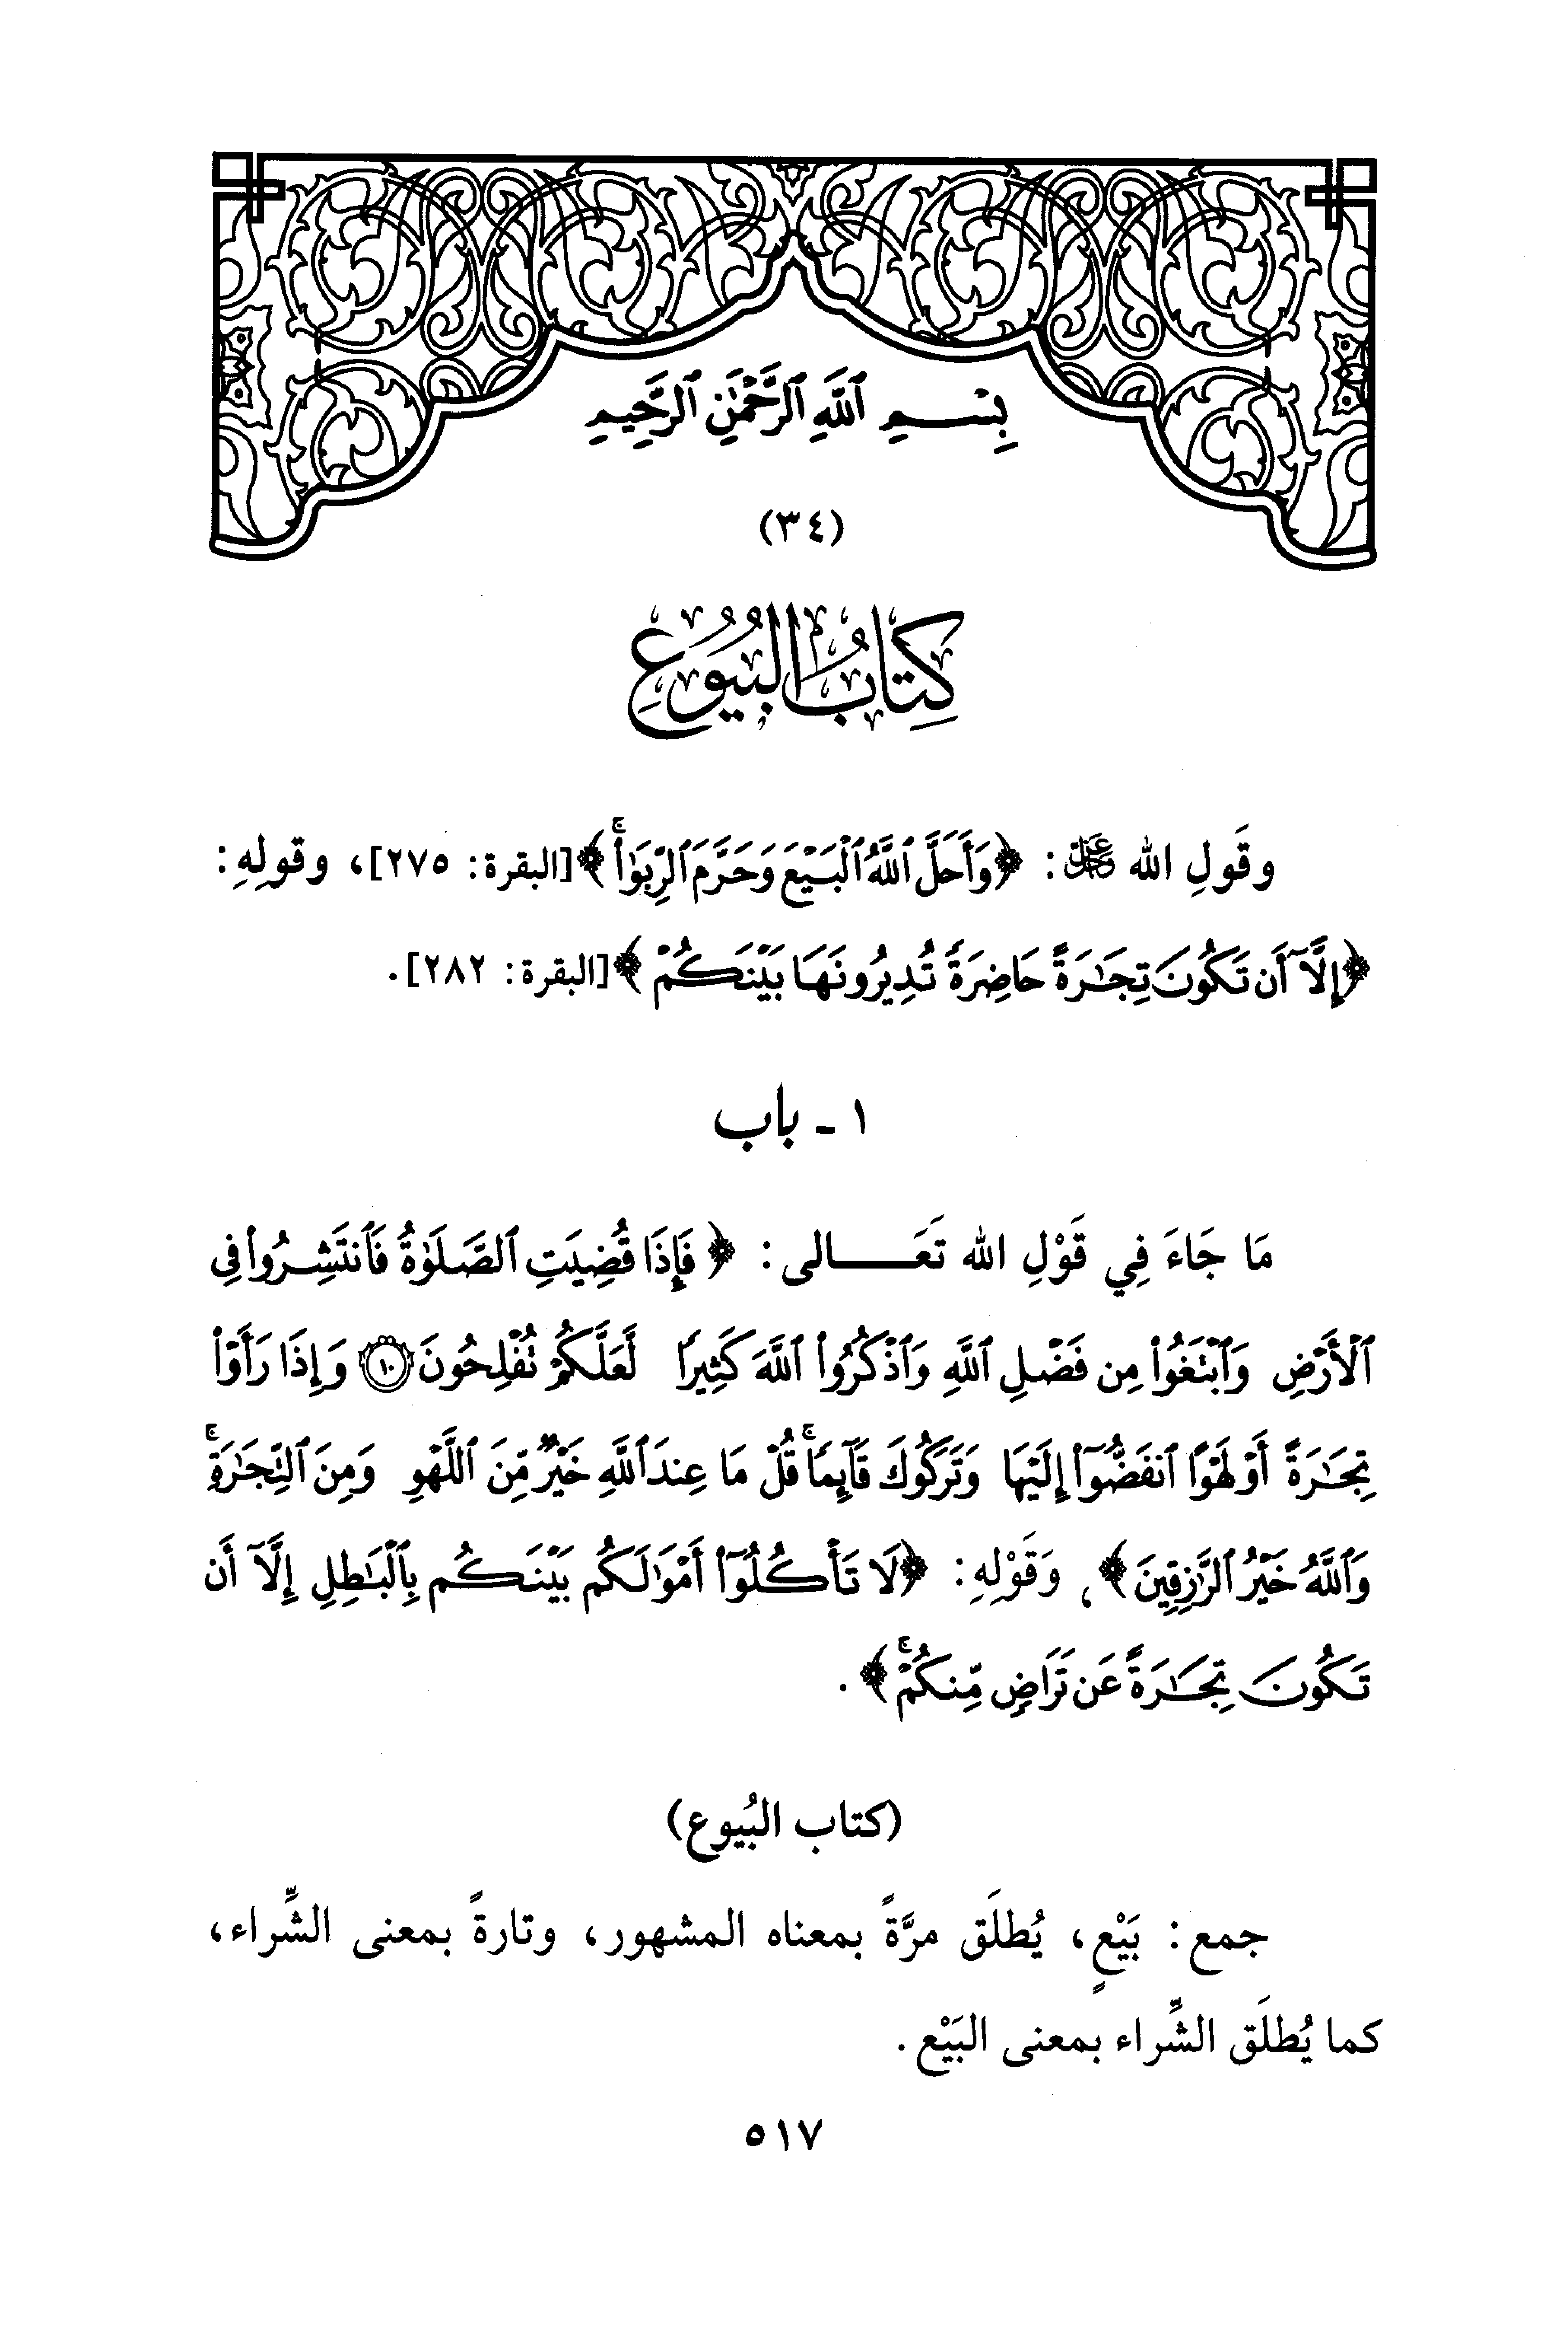 بِسْمِ ٱللَّهِ ٱلرَّحْمَٰنِ ٱلرَّحِيمِ
(٣٤)
كِتَابُ البُيُوعِ
وقَولِ الله عَزَّ وَجَلَّ: ﴿وَأَحَلَّ ٱللَّهُ ٱلْبَيْعَ وَحَرَّمَ ٱلرِّبَوٰا۟ۚ﴾ [البقرة: ٢٧٥]، وقولِهِ:
﴿إِلَّآ أَن تَكُونَ تِجَٰرَةً حَاضِرَةً تُدِيرُونَهَا بَيْنَكُمْ﴾ [البقرة: ٢٨٢].
١ - باب
مَا جَاءَ فِي قَوْلِ الله تَعَالى: ﴿فَإِذَا قُضِيَتِ ٱلصَّلَوٰةُ فَٱنتَشِرُوا۟ فِى
ٱلْأَرْضِ وَٱبْتَغُوا۟ مِن فَضْلِ ٱللَّهِ وَٱذْكُرُوا۟ ٱللَّهَ كَثِيرًا لَعَلَّكُمْ تُفْلِحُونَ ١٠ وَإِذَا رَأَوْا۟
تِجَٰرَةً أَوْ لَهْوًا ٱنفَضُّوٓا۟ إِلَيْهَا وَتَرَكُوكَ قَآئِمًاۚ قُلْ مَا عِندَ ٱللَّهِ خَيْرٌ مِّنَ ٱللَّهْوِ وَمِنَ ٱلتِّجَٰرَةِۚ
وَٱللَّهُ خَيْرُ ٱلرَّٰزِقِينَ﴾، وَقَوْلِهِ: ﴿لَا تَأْكُلُوٓا۟ أَمْوَٰلَكُم بَيْنَكُم بِٱلْبَٰطِلِ إِلَّآ أَن
تَكُونَ تِجَٰرَةً عَن تَرَاضٍ مِّنكُمْۚ﴾.
(كتاب البُيوع)
جمع: بَيْعٍ، يُطلَق مرَّةً بمعناه المشهور، وتارةً بمعنى الشِّراء،
كما يُطلَق الشِّراء بمعنى البَيْع.
٥١٧